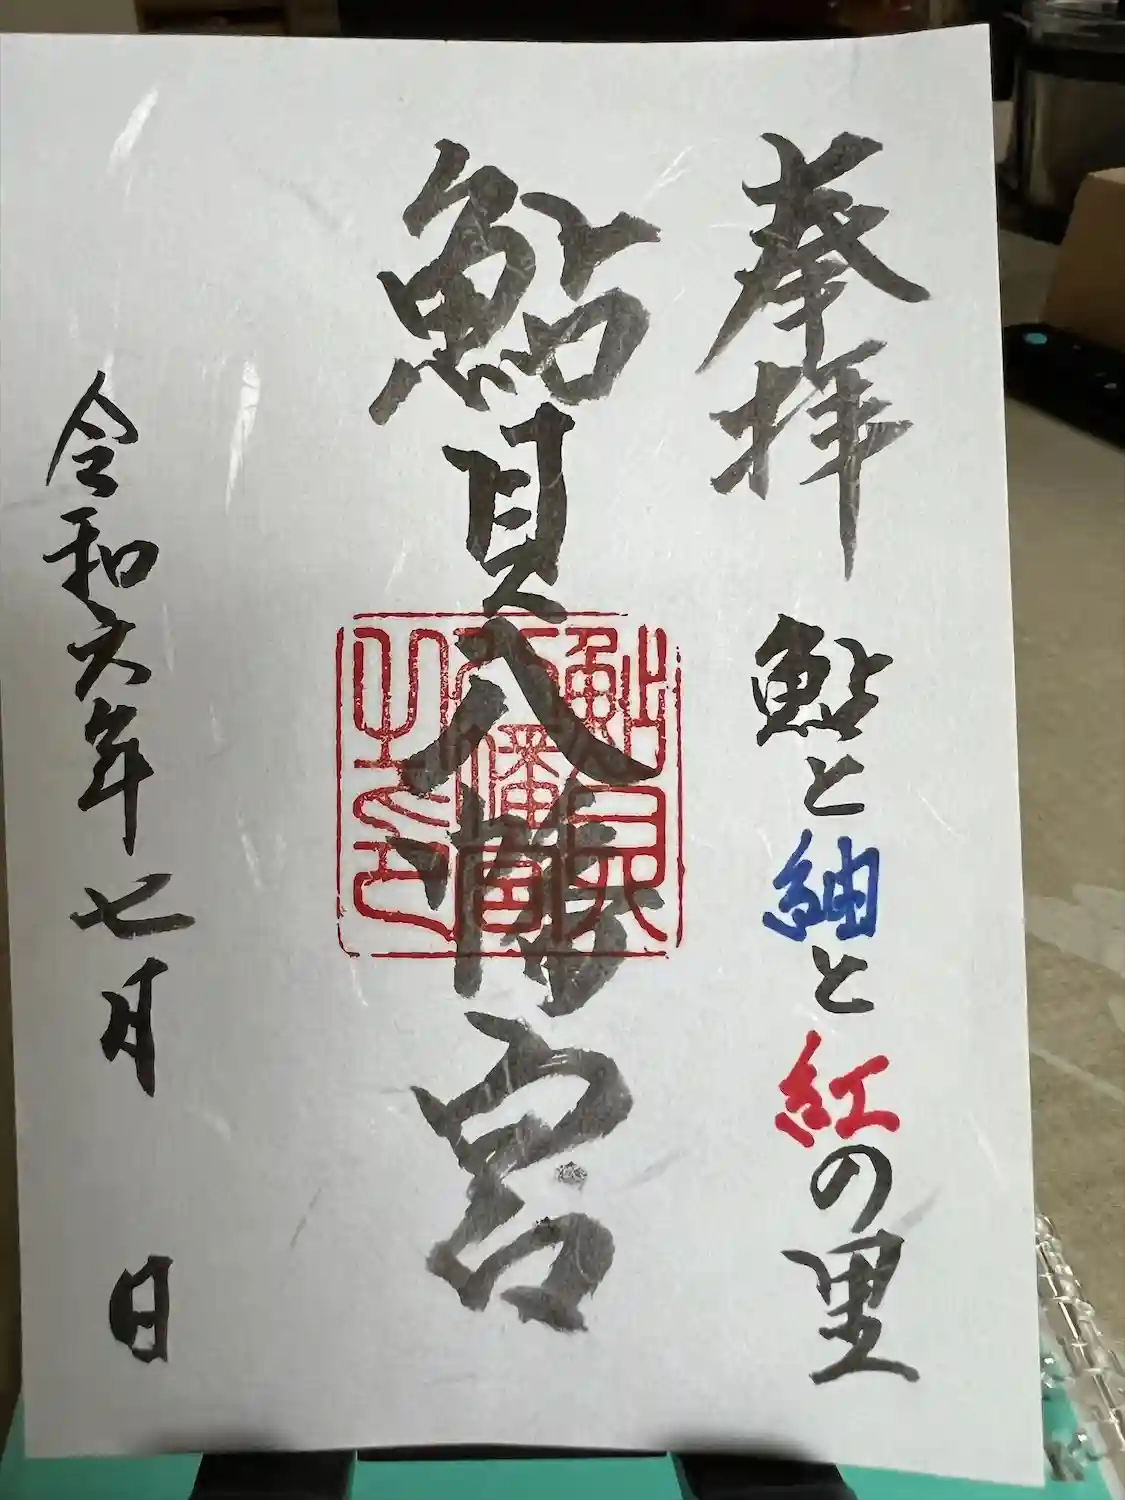 奉拝
鮎と紬と紅の里
鮎貝八幡宮
鮎貝八幡宮之印
令和六年七月 日